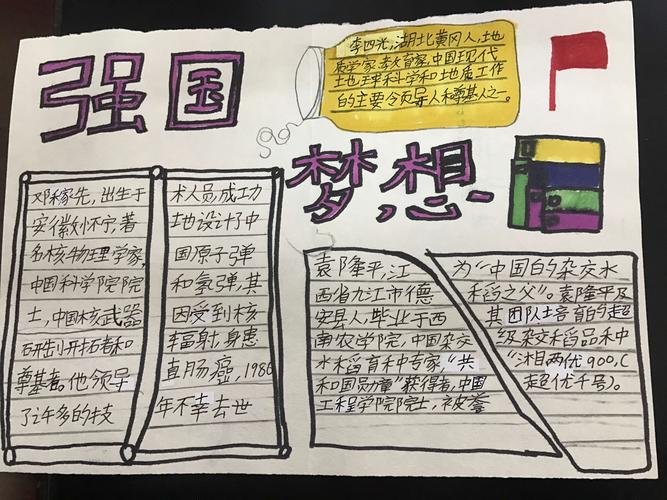 强国
梦想
李四光,湖北黄冈人,地
质学家、教育家,中国现代
地球科学和地质工作
的主要领导人和奠基人之一。
邓稼先,出生于
安徽怀宁,著
名核物理学家,
中国科学院院
士,中国核武器
研制开拓者和
奠基者。他领导
了许多的技
术人员,成功
地设计了中
国原子弹
和氢弹,其
因受到核
辐射,身患
直肠癌,1986
年不幸去世
袁隆平,江
西省九江市德
安县人,毕业于西
南农学院,中国杂交
水稻育种专家,“共
和国勋章”获得者,中国
工程学院院士,被誉
为“中国的杂交水
稻之父”。袁隆平及
其团队培育的超
级杂交稻品种
“湘两优900,(
超优千号)。